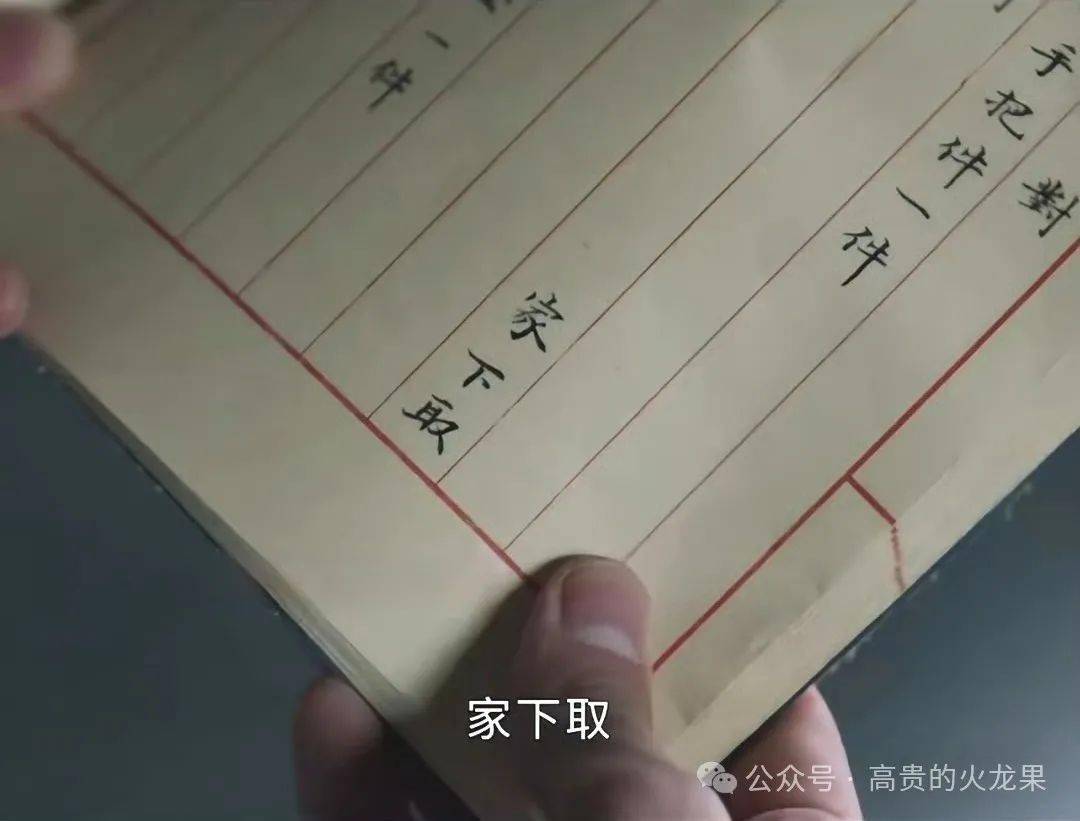 對
手把件一件
家下取
一件
家下取
公众号·高贵的火龙果